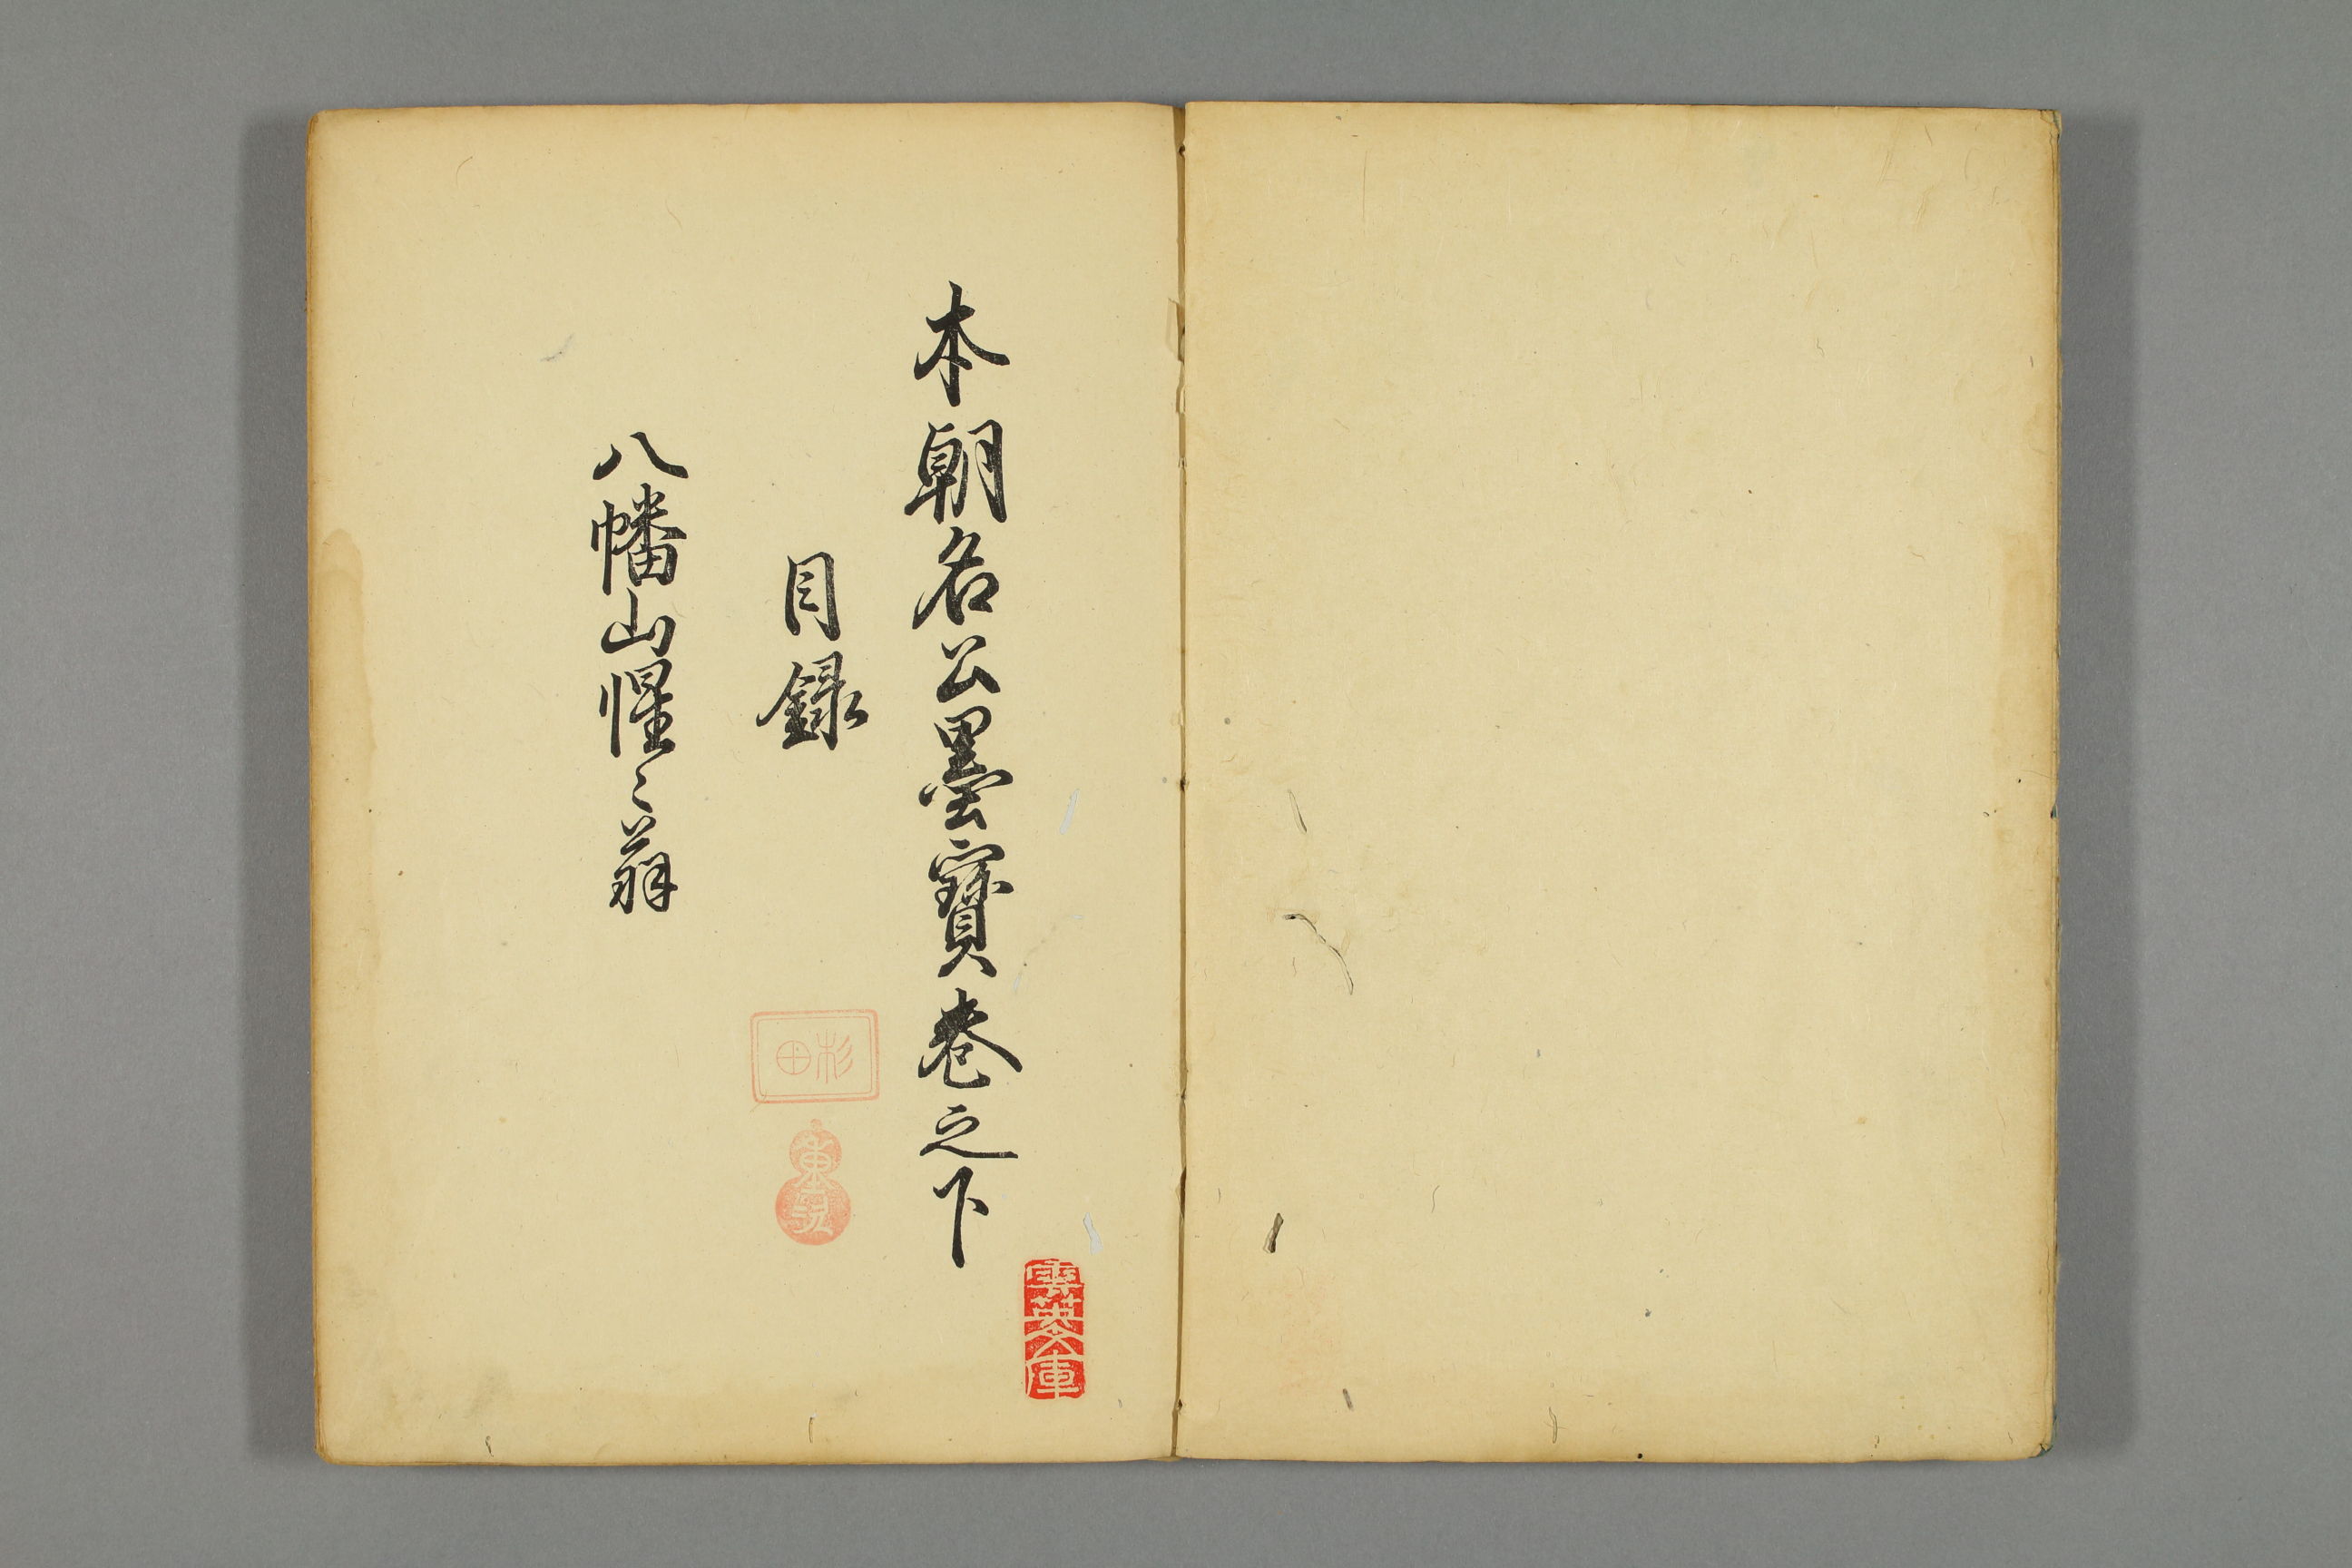 本朝名公墨寶卷之下
目録
八幡山惺〻翁
杉田
雲英文庫